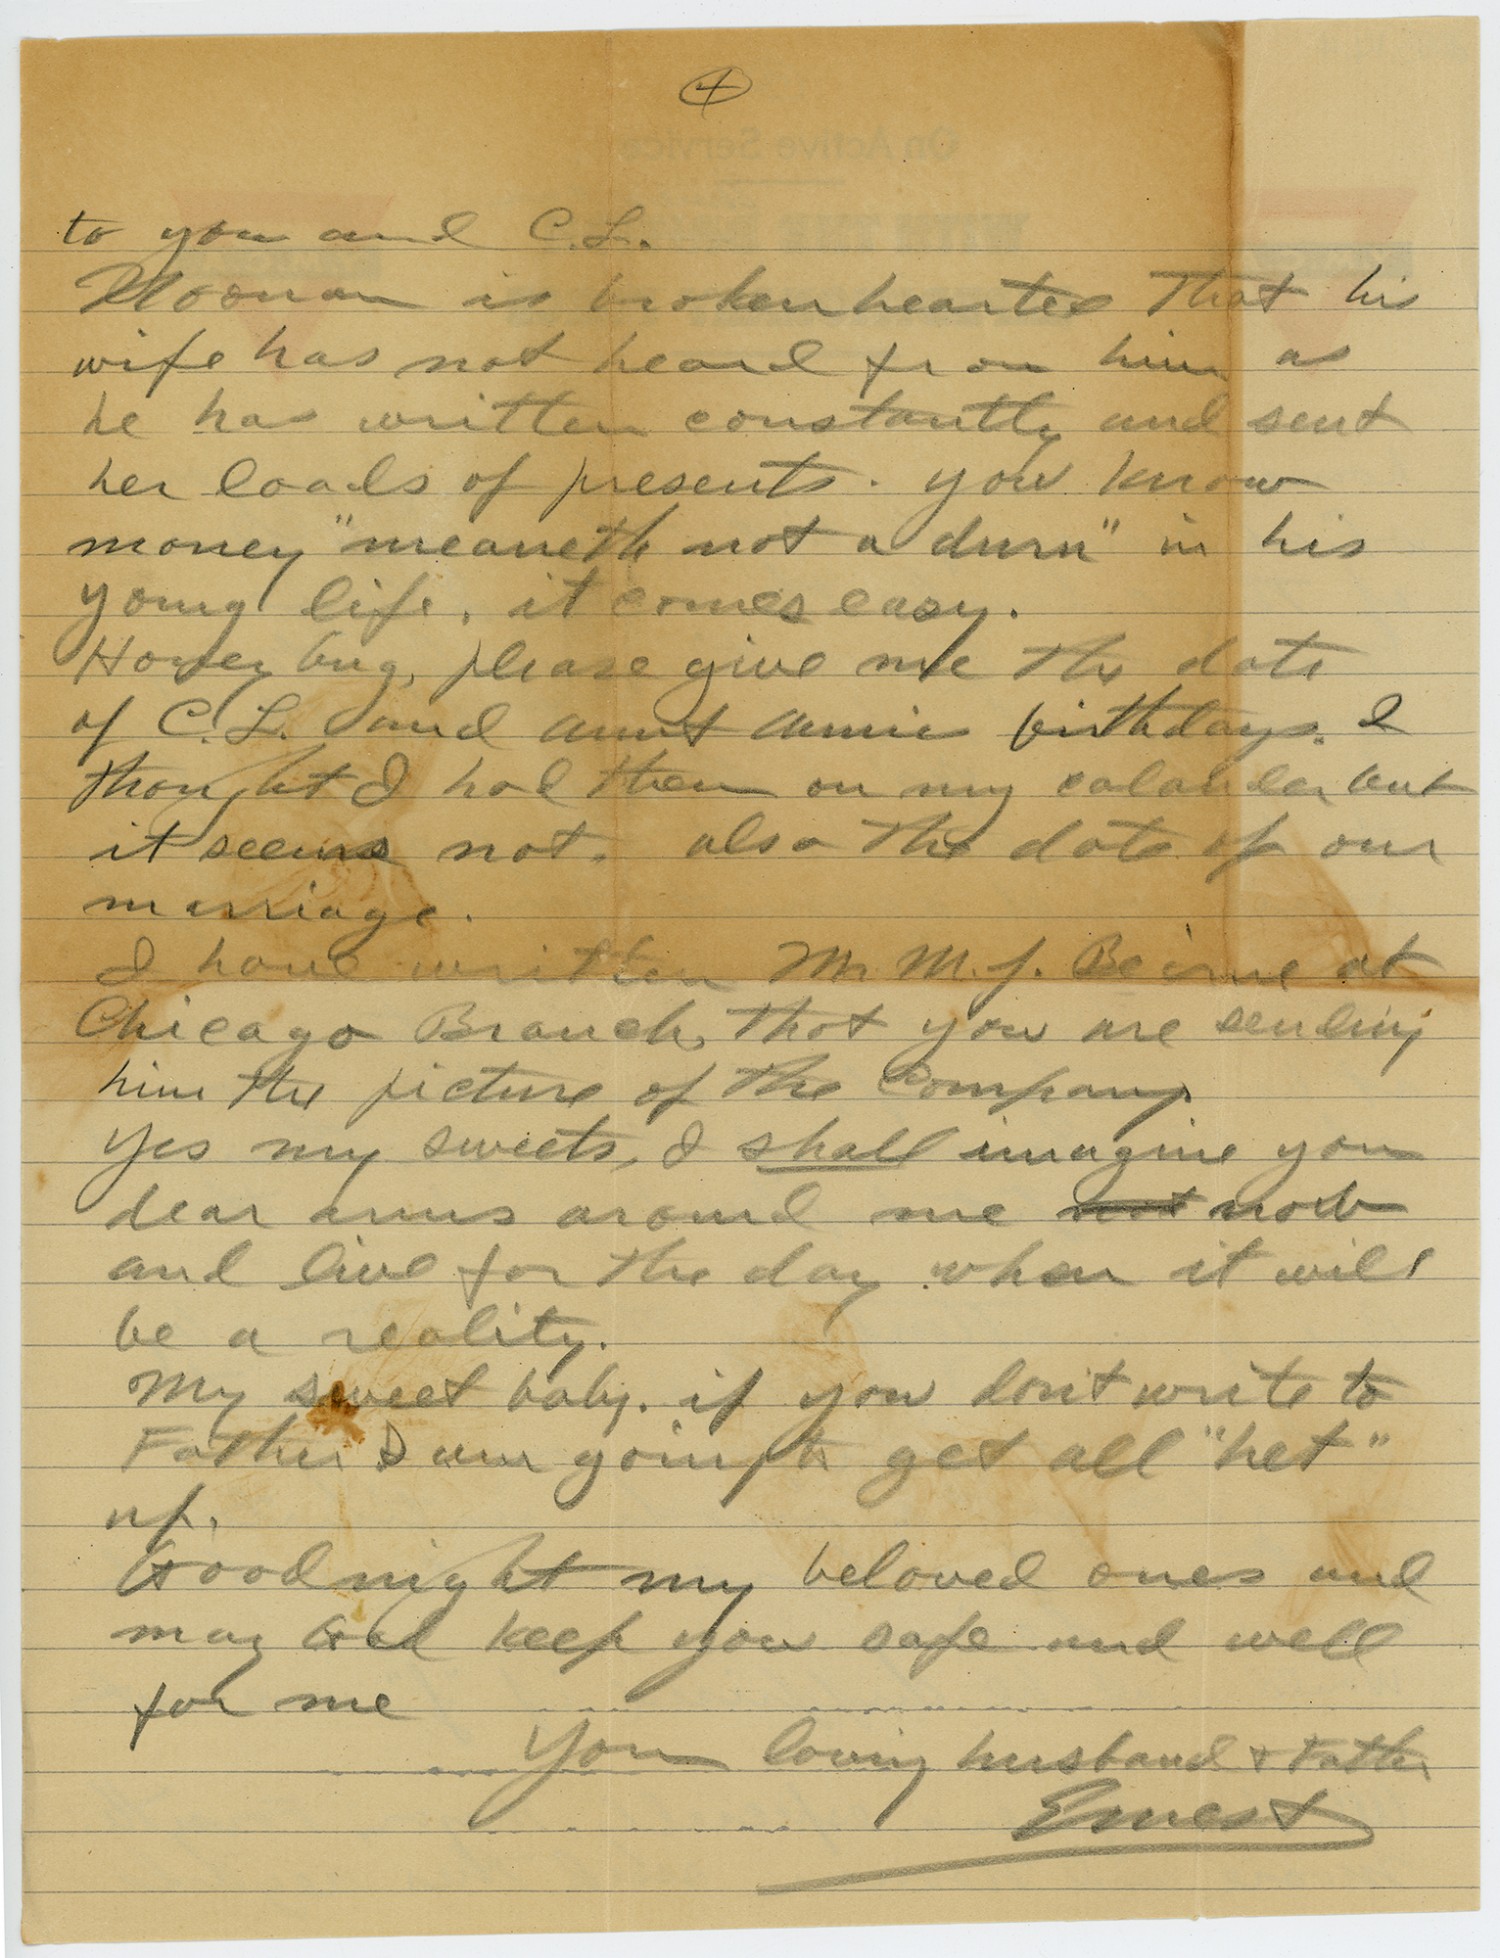 4
On Active Service
to you and C.L.
Noonan is broken hearted that his
wife has not heard from him as
he has written constantly and sent
her loads of presents. you know
money "meaneth not a durn" in his
young life. it comes easy.
Honey bug, please give me the date
of C.L. and aunt annie birthdays. I
thought I had them on my calander but
it seems not. also the date of our
marriage.
I have written Mr M.J. Beirne at
Chicago Branch, that you are sending
him the picture of the Company.
Yes my sweets, I shall imagine your
dear arms around me not now
and live for the day when it will
be a reality.
My sweet baby. if you don't write to
Father I am going to get all "het"
up.
Goodnight my beloved ones and
may God keep you safe and well
for me
Your loving husband & Father
Ernest